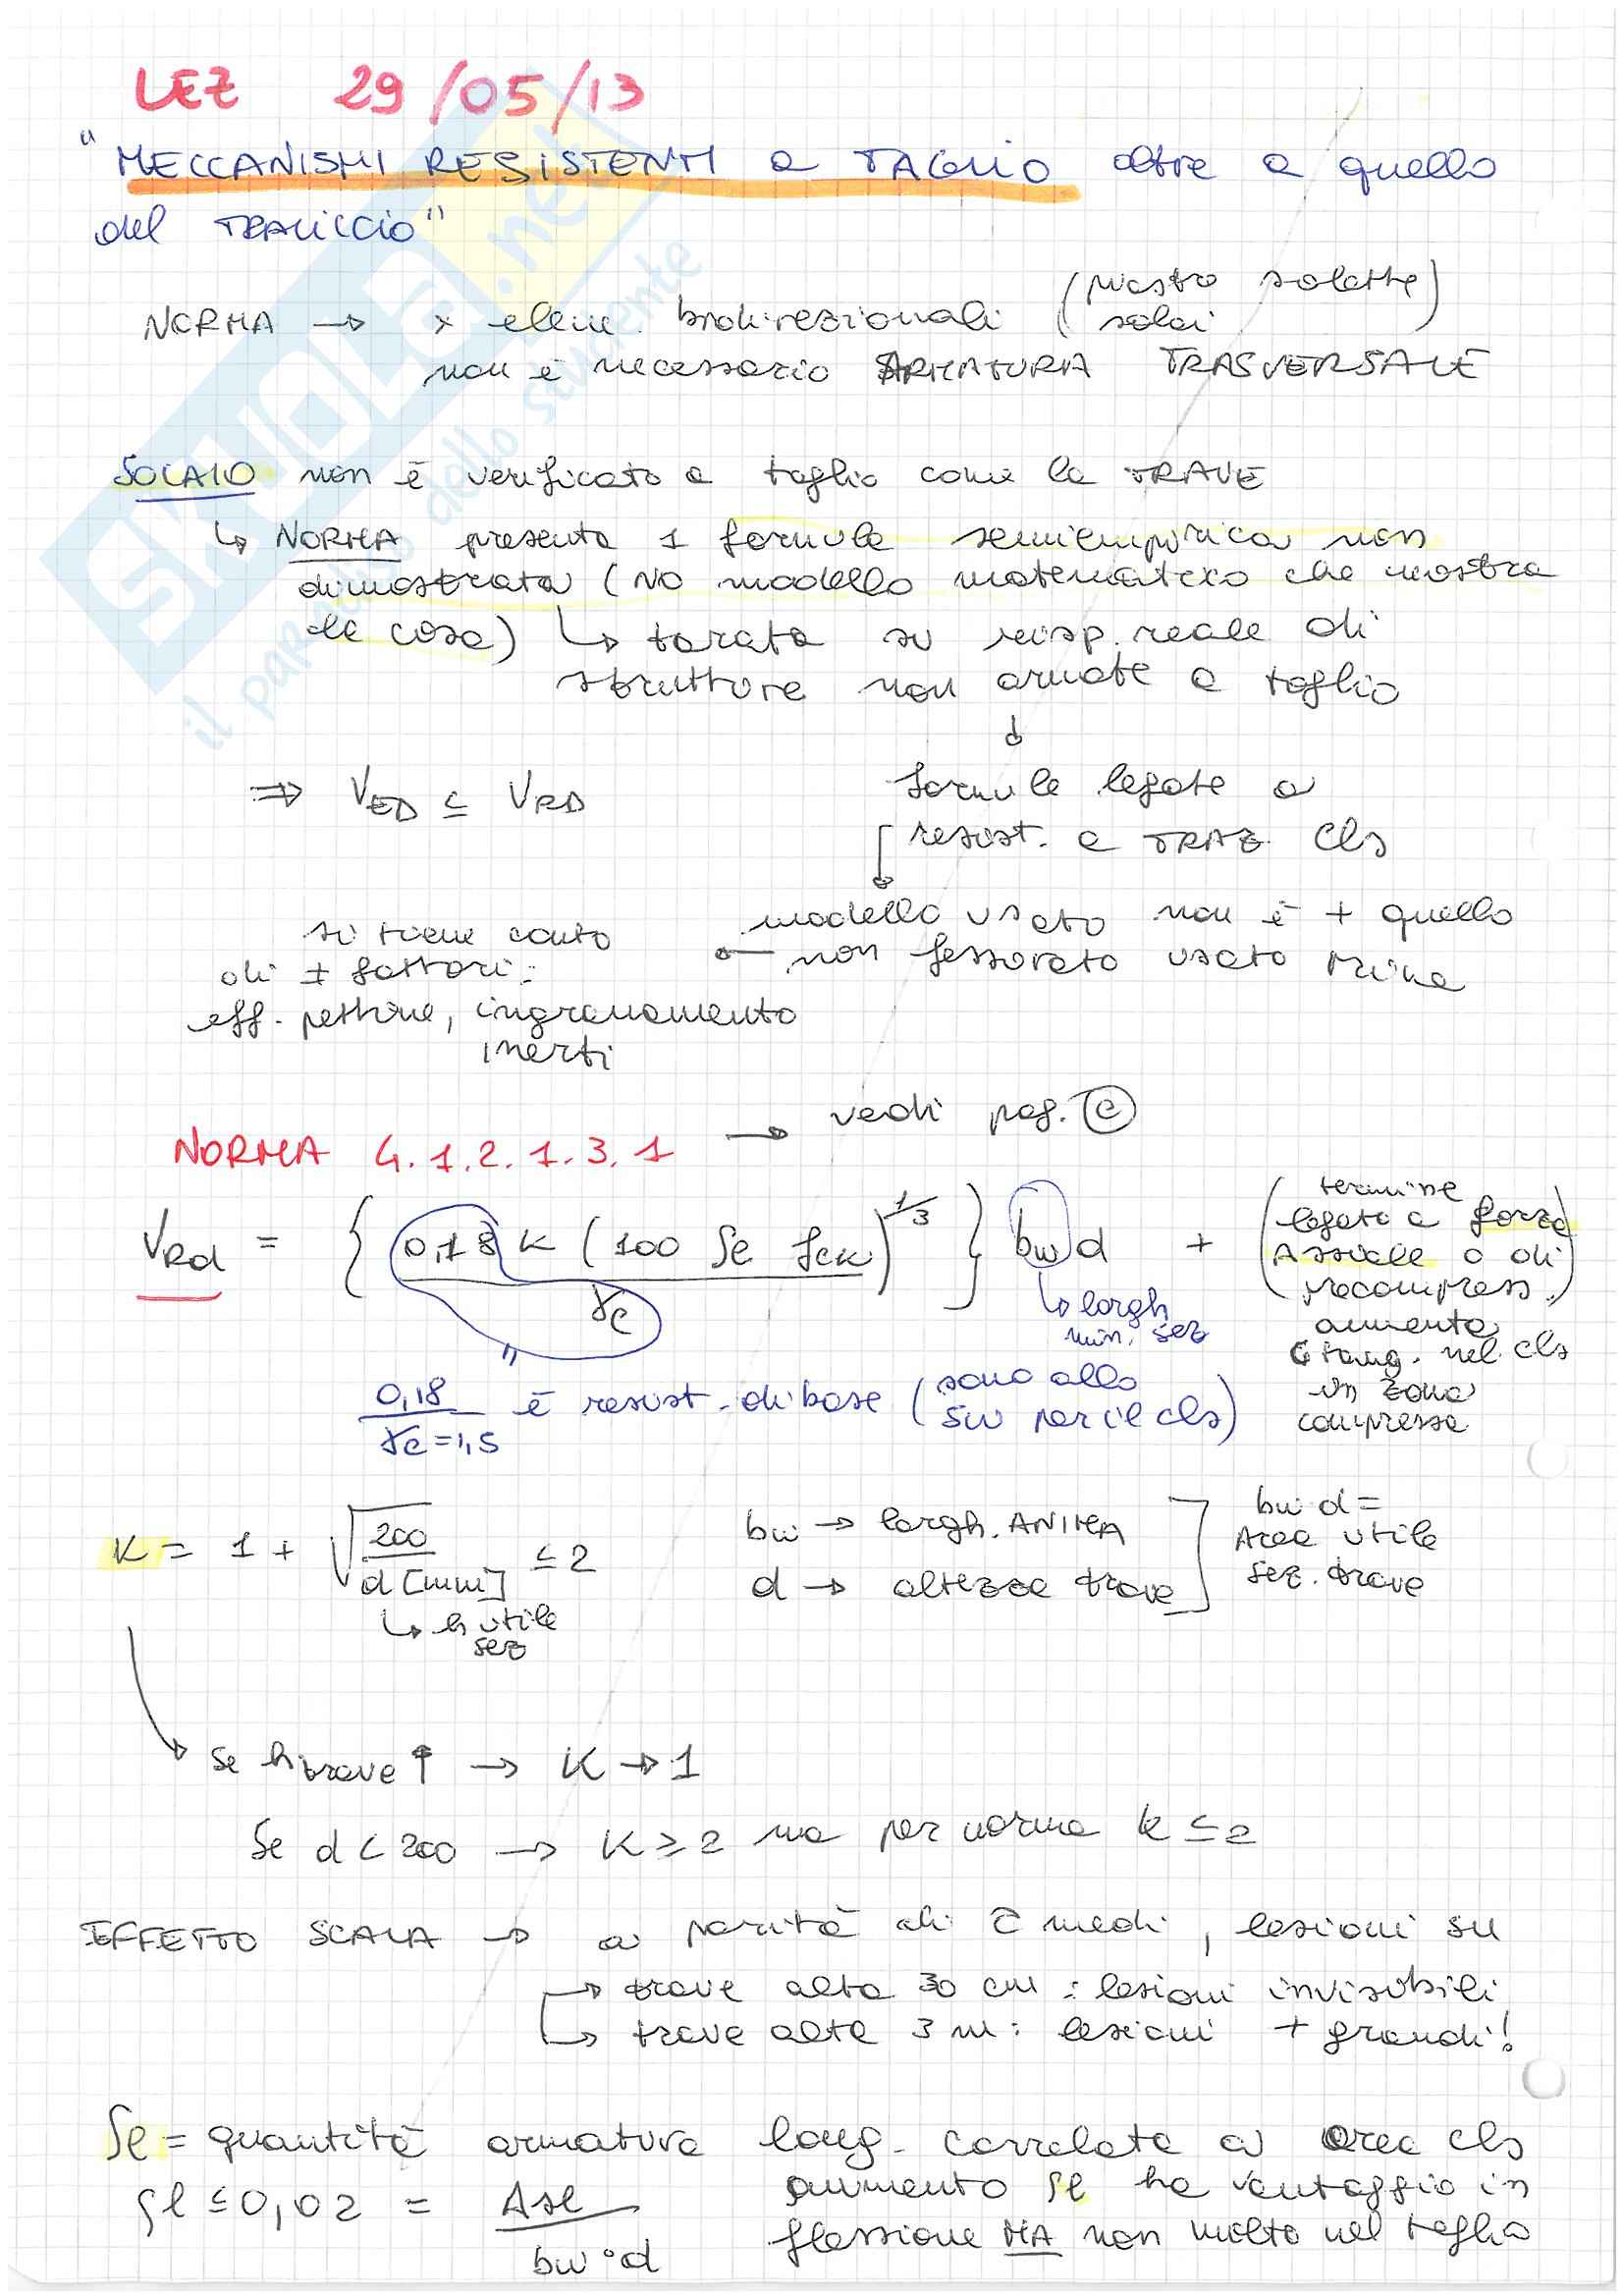 LEZ 29/05/13
"MECCANISMI RESISTENTI a TAGLIO oltre a quello
del TRALICCIO"
NORMA → x elem. bidirezionali (piastre solette
solai)
non è necessario ARMATURA TRASVERSALE
SOLAIO non è verificato a taglio come la TRAVE
↳ NORMA presenta 1 formula semiempirica non
dimostrata (NO modello matematico che mostra
la cosa) ↳ tarata su risp. reale di
strutture non armate a taglio
↓
formule legate a
resist. a TRAZ. cls
⇒ VED ≤ VRD
modello usato non è + quello
non fessurato usato prima
si tiene conto
di + fattori:
eff. pettine, ingranamento
inerti
NORMA 4.1.2.1.3.1 → vedi pag. (e)
VRd = { 0,18 K (100 ρe fck)^1/3 / γc } bw d + (termine
legato a forza
Assiale o di
precompress.)
aumenta
σ tang. nel cls
in zona
compressa
↳ largh
min. sez
"
0,18 / γc=1,5 è resist. di base (siamo allo
SLU per il cls)
K = 1 + √200 / d [mm] ≤ 2
↳ h utile
sez
bw → largh. ANIMA
d → altezza trave
bw d =
Area utile
sez. trave
Se h trave ↑ → K → 1
Se d < 200 → K ≥ 2 ma per norma k ≤ 2
EFFETTO SCALA → a parità di τ medi, lesioni su
→ trave alta 30 cm : lesioni invisibili
↳ trave alta 3 m : lesioni + grandi!
ρe = quantità armatura long. correlata a area cls
ρl ≤ 0,02 = Asl / bw · d
aumento ρe ha vantaggio in
flessione MA non molto nel taglio
SKUOLA.net
il paradiso dello studente